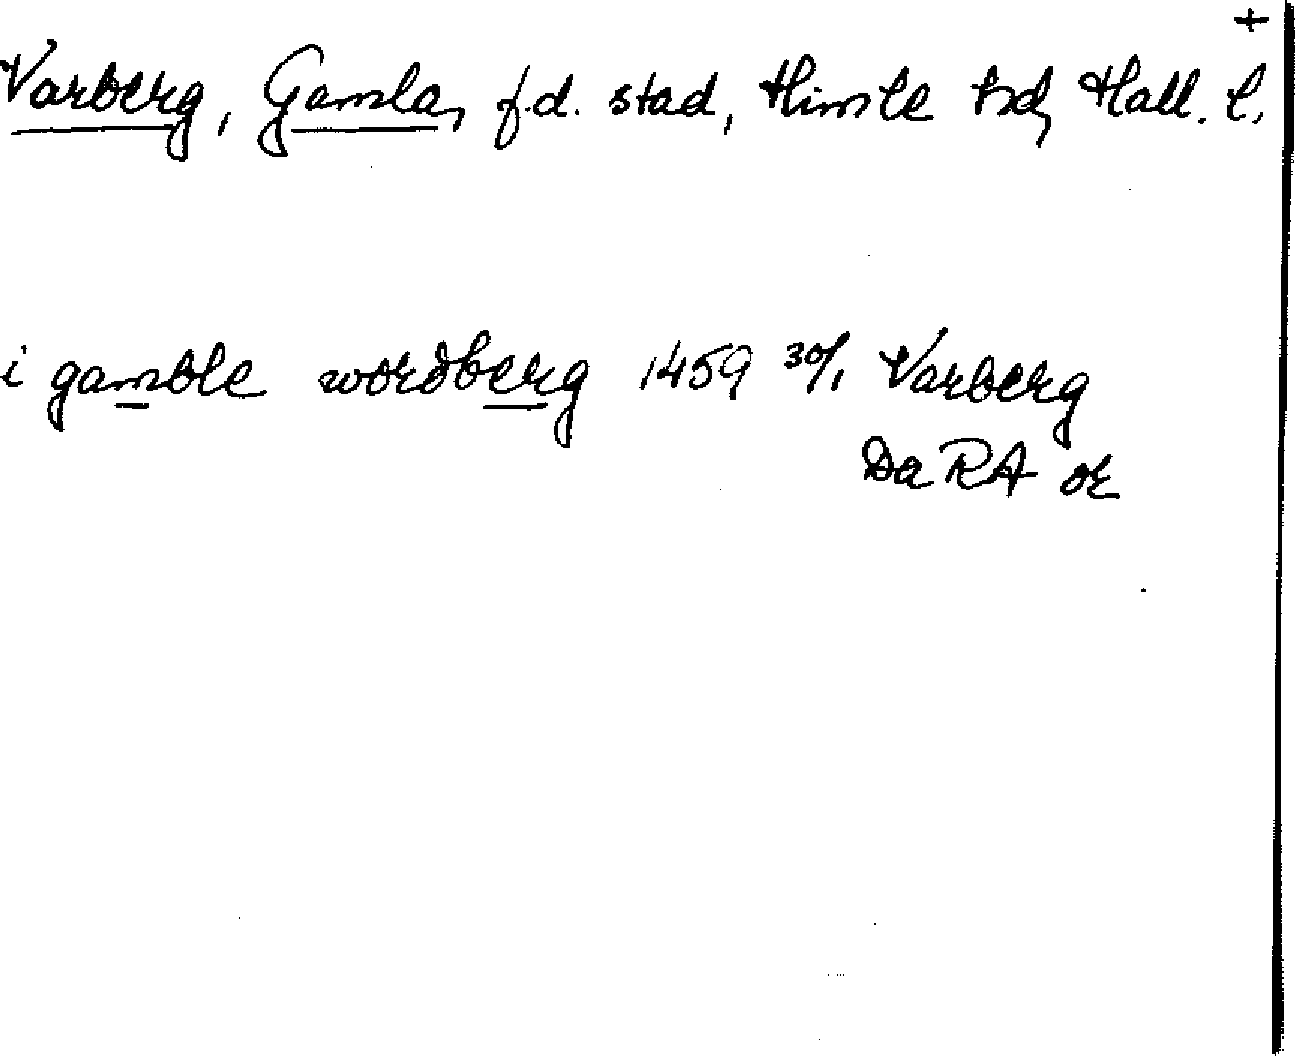 +
Varberg, Gamla, f.d. stad, Himle hd, Hall. l.
i gamble wordberg 1459 30/1 Varberg
Da RA or